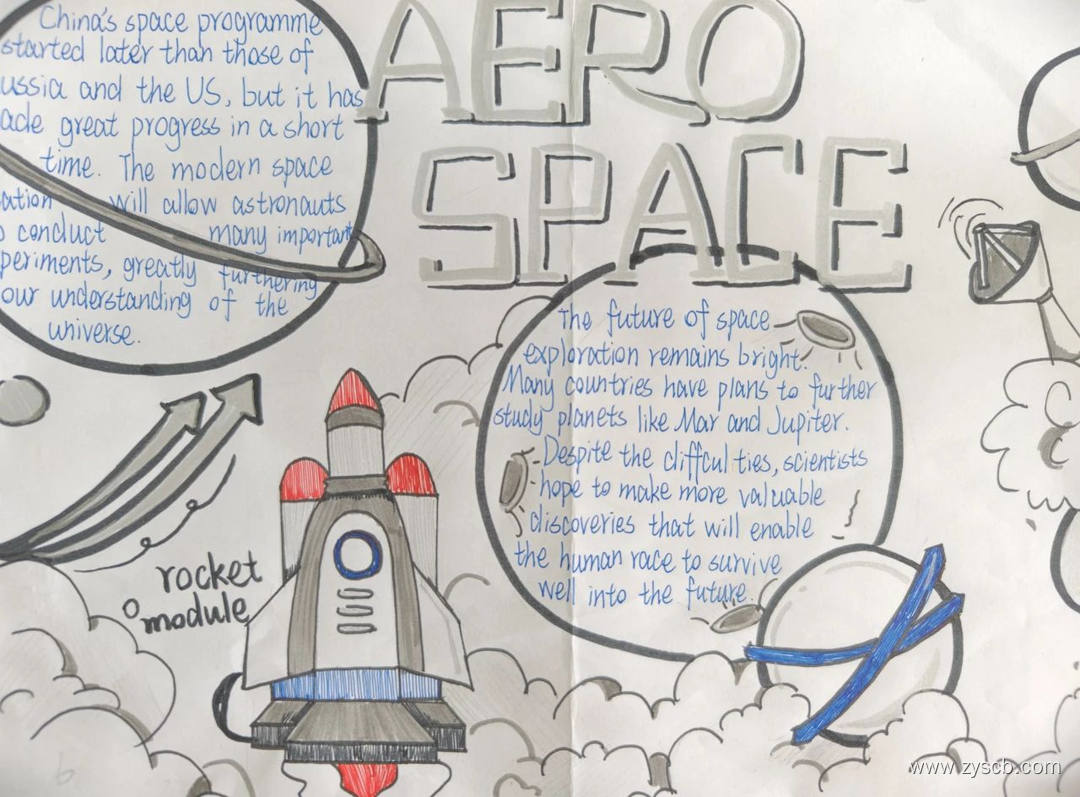 AERO
SPACE
China's space programme
started later than those of
ussia and the US, but it has
ade great progress in a short
time. The modern space
ation will allow astronauts
o conduct many important
periments, greatly furthering
our understanding of the
universe.
The future of space
exploration remains bright.
Many countries have plans to further
study planets like Mar and Jupiter.
Despite the diffculties, scientists
hope to make more valuable
discoveries that will enable
the human race to survive
well into the future.
rocket
module
www.zyscb.com